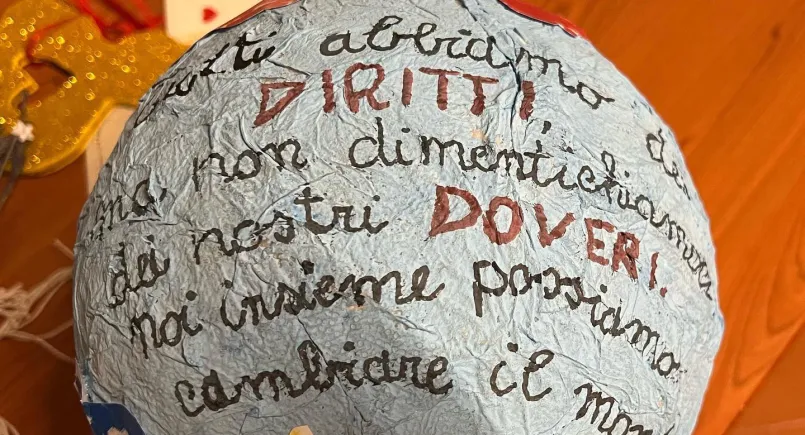 tutti abbiamo dei
DIRITTI,
ma non dimentichiamoci
dei nostri DOVERI.
noi insieme possiamo
cambiare il mon